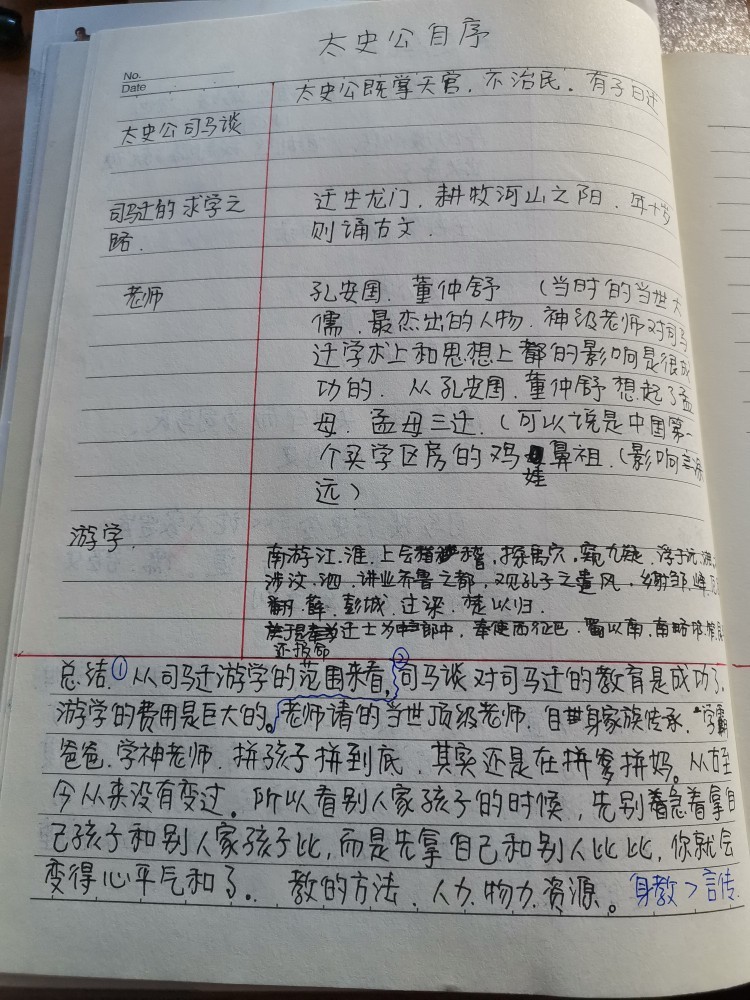 太史公自序
No.
Date
太史公既掌天官，不治民。有子曰迁
太史公司马谈
司马迁的求学之
路.
迁生龙门，耕牧河山之阳，年十岁
则诵古文.
老师
孔安国、董仲舒 （当时的当世大
儒，最杰出的人物，神级老师对司马
迁学术上和思想上都的影响是很成
功的. 从孔安国、董仲舒想起了孟
母，孟母三迁.（可以说是中国第一
个买学区房的鸡娃鼻祖.（影响
远）
游学.
南游江、淮，上会稽，探禹穴，窥九疑，浮于沅
涉汶、泗，讲业齐鲁之都，观孔子之遗风，乡射邹、峄
薛、彭城，过梁、楚以归.
于是迁士为郎中，奉使西征巴、蜀以南，南略邛
还报命
总结 ①从司马迁游学的范围来看，②司马谈对司马迁的教育是成功了.
游学的费用是巨大的。老师请的当世顶级老师. 自身家族传承. 学霸
爸爸. 学神老师. 拼孩子拼到底，其实还是在拼爹拼妈。从古至
今从来没有变过。所以看别人家孩子的时候，先别着急着拿自
己孩子和别人家孩子比，而是先拿自己和别人比比，你就会
变得心平气和了。 教的方法. 人力.物力.资源。身教>言传.